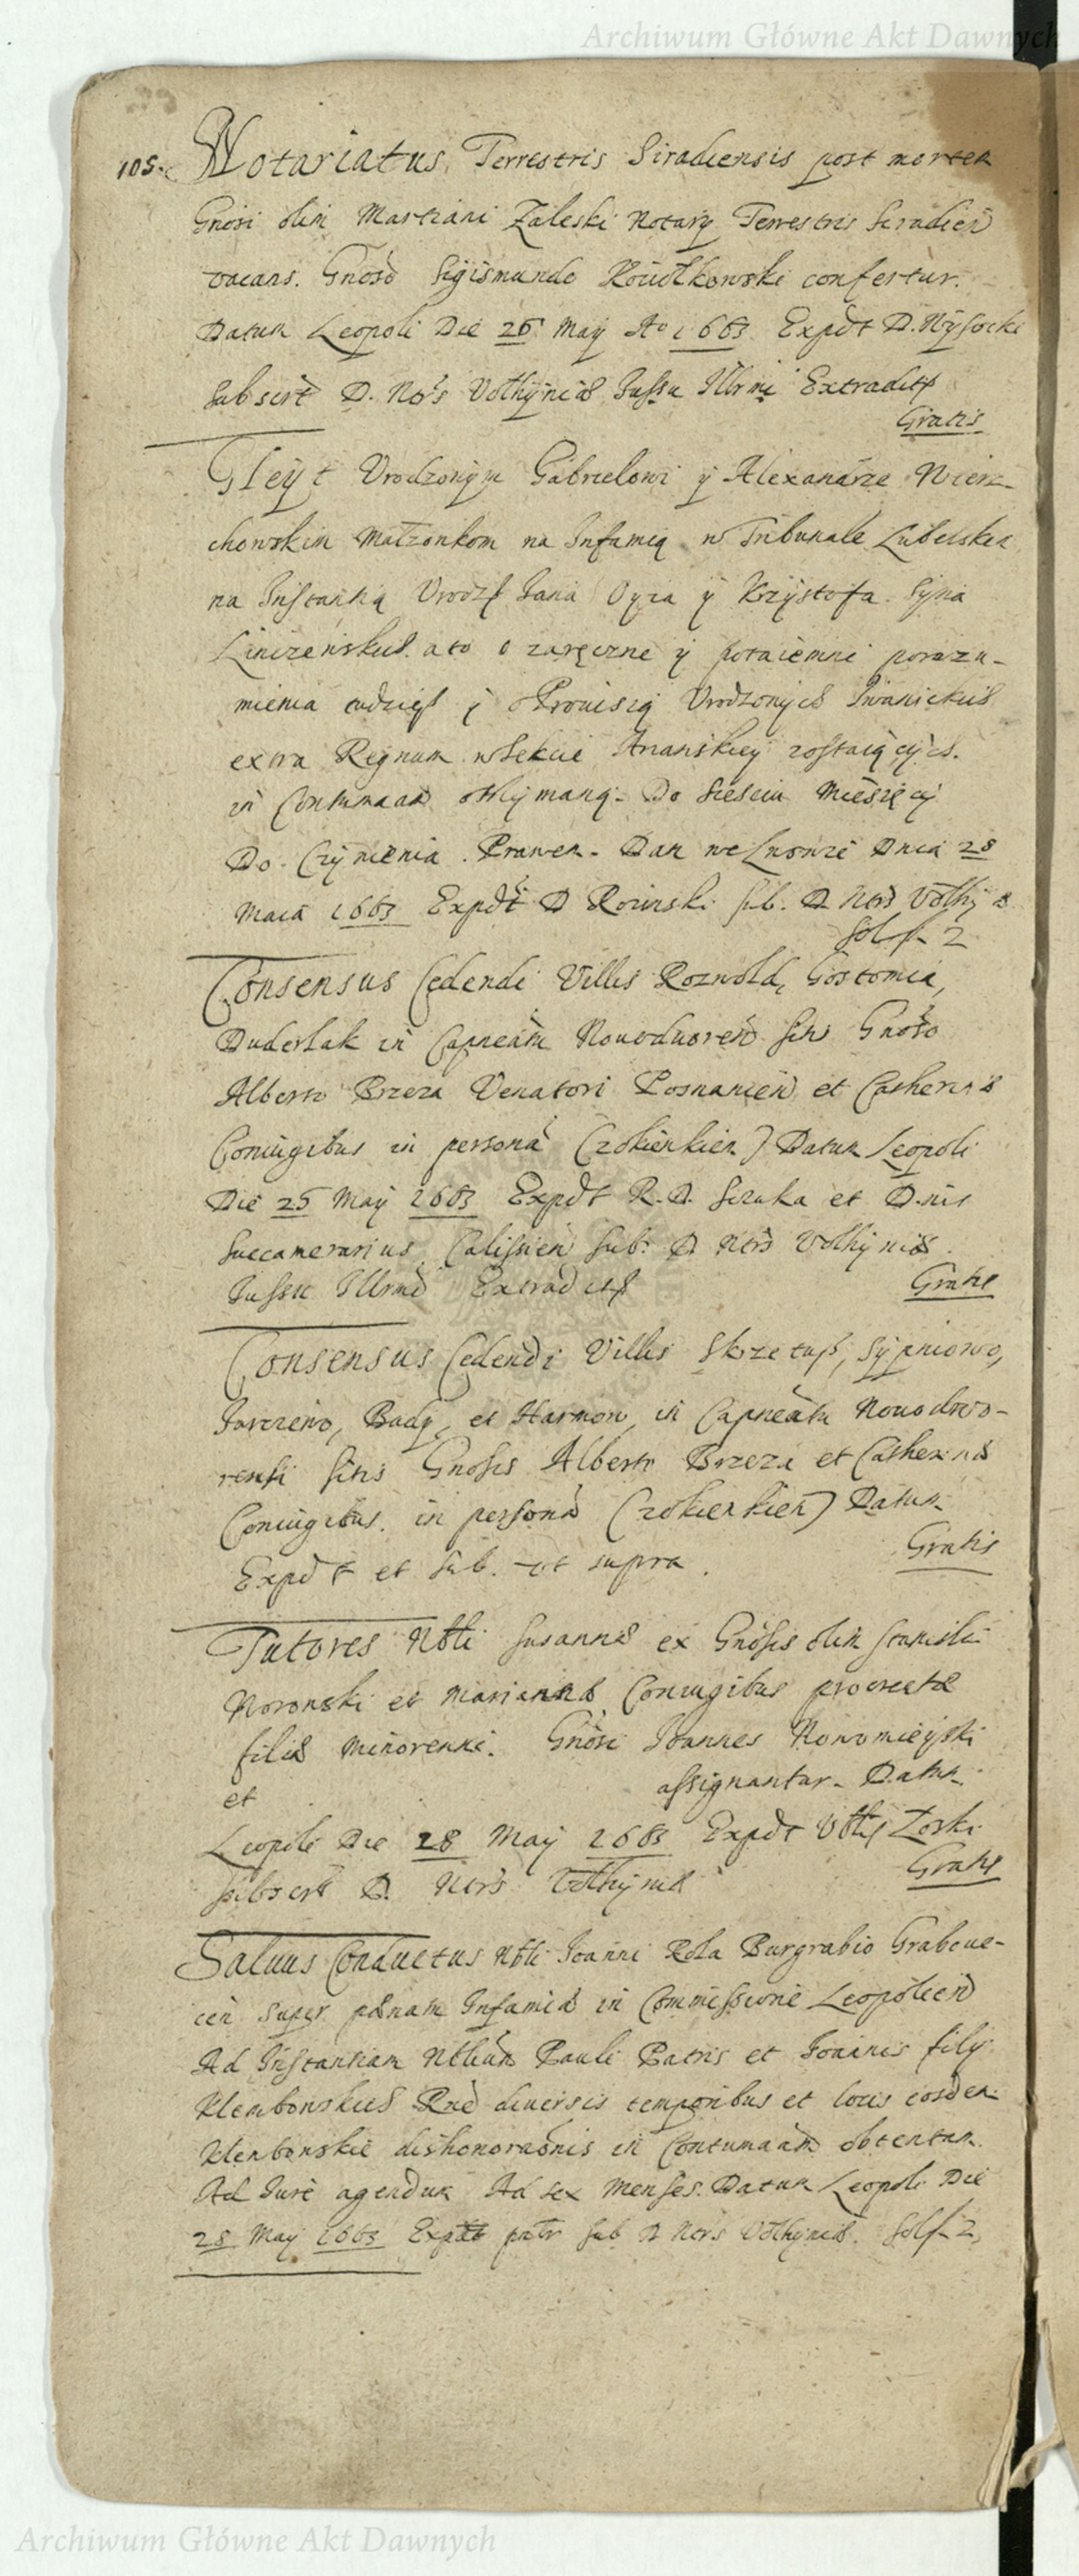 Archiwum Główne Akt Dawnych
105. Notariatus Terrestris Siradiensis post mortem
Gnosi olim Martiani Zaleski Notary Terrestris Siradien
vacans. Gnoso Sigismundo confertur.
Datum Leopoli Die 26 May Ao 1663 Expdt D. Wysocki
Subscrt D. Nors Volhyniæ Jussu Illrmi Extradits
Gratis
Gleyt Vrodzonym Gabrielowi y Alexandrze Wierz-
chowskim Małzonkom na Infamią w Tribunale Lubelskim
na Instantią Vrodz Jana Oyca y Krzysztofa Syna
a to o zaręczne y potaiemne porozu-
mienia y Vrodzonych Iwanickich
extra Regnum w Sekcie Arianskiey zostaiących.
in Contumaciam otrzymaną. Do Szesciu Miesięcy
Do Czynienia Prawem. Dan we Lwowie Dnia 28
Maia 1663 Expdt D sub. D Nors Volhyæ
Sol f. 2
Consensus Cedendi Villis Rozwold, Gostomia,
Duderlak in Capneatu Nouoduoren sitis Gnoso
Alberto Brzeza Venatori Posnanien et Catherinæ
Coniugibus in personam (zokierkiem) Datum Leopoli
Die 25 May 1663 Expdt R. D. Sczuka et D.nus
Succamerarius Calissien sub. D. Nors Volhyniæ.
Jussu Illrmi Extradits Gratis
Consensus Cedendi Villis Skrzetusz, Sypniowo,
Jarczewo, Bady, et Harmon, in Capneatu Nouodwo-
rensi sitis Gnosis Alberto Brzeza et Catherinæ
Coniugibus. in personam (zokierkiem) Datum
Expdt et sub. ut supra. Gratis
Tutores Nbli Susannæ ex Gnosis olim Stanislai
Woronski et Mariannæ Coniugibus procreatæ
filiæ minorenni. Gnosi Joannes Nowomieyski
et assignantur. Datum
Leopoli Die 28 May 1663 Expdt Vbls Zorski
Subscrt D. Nors Volhyniæ Gratis
Saluus Conductus Nbli Joanni Rola Burgrabio Grabouie-
cen super pænam Infamiæ in Commissione Leopolien
Ad Instantiam Nblium Pauli Patris et Joannis fily
Klembowskich Rne diuersis temporibus et locis eosdem
Klembowskie dishonoraonis in Contumaciam obtentam.
Ad Jure agendum Ad sex Menses. Datum Leopoli Die
28 May 1663 Expdt sub D Nors Volhyniæ. Sol f. 2.
Archiwum Główne Akt Dawnych